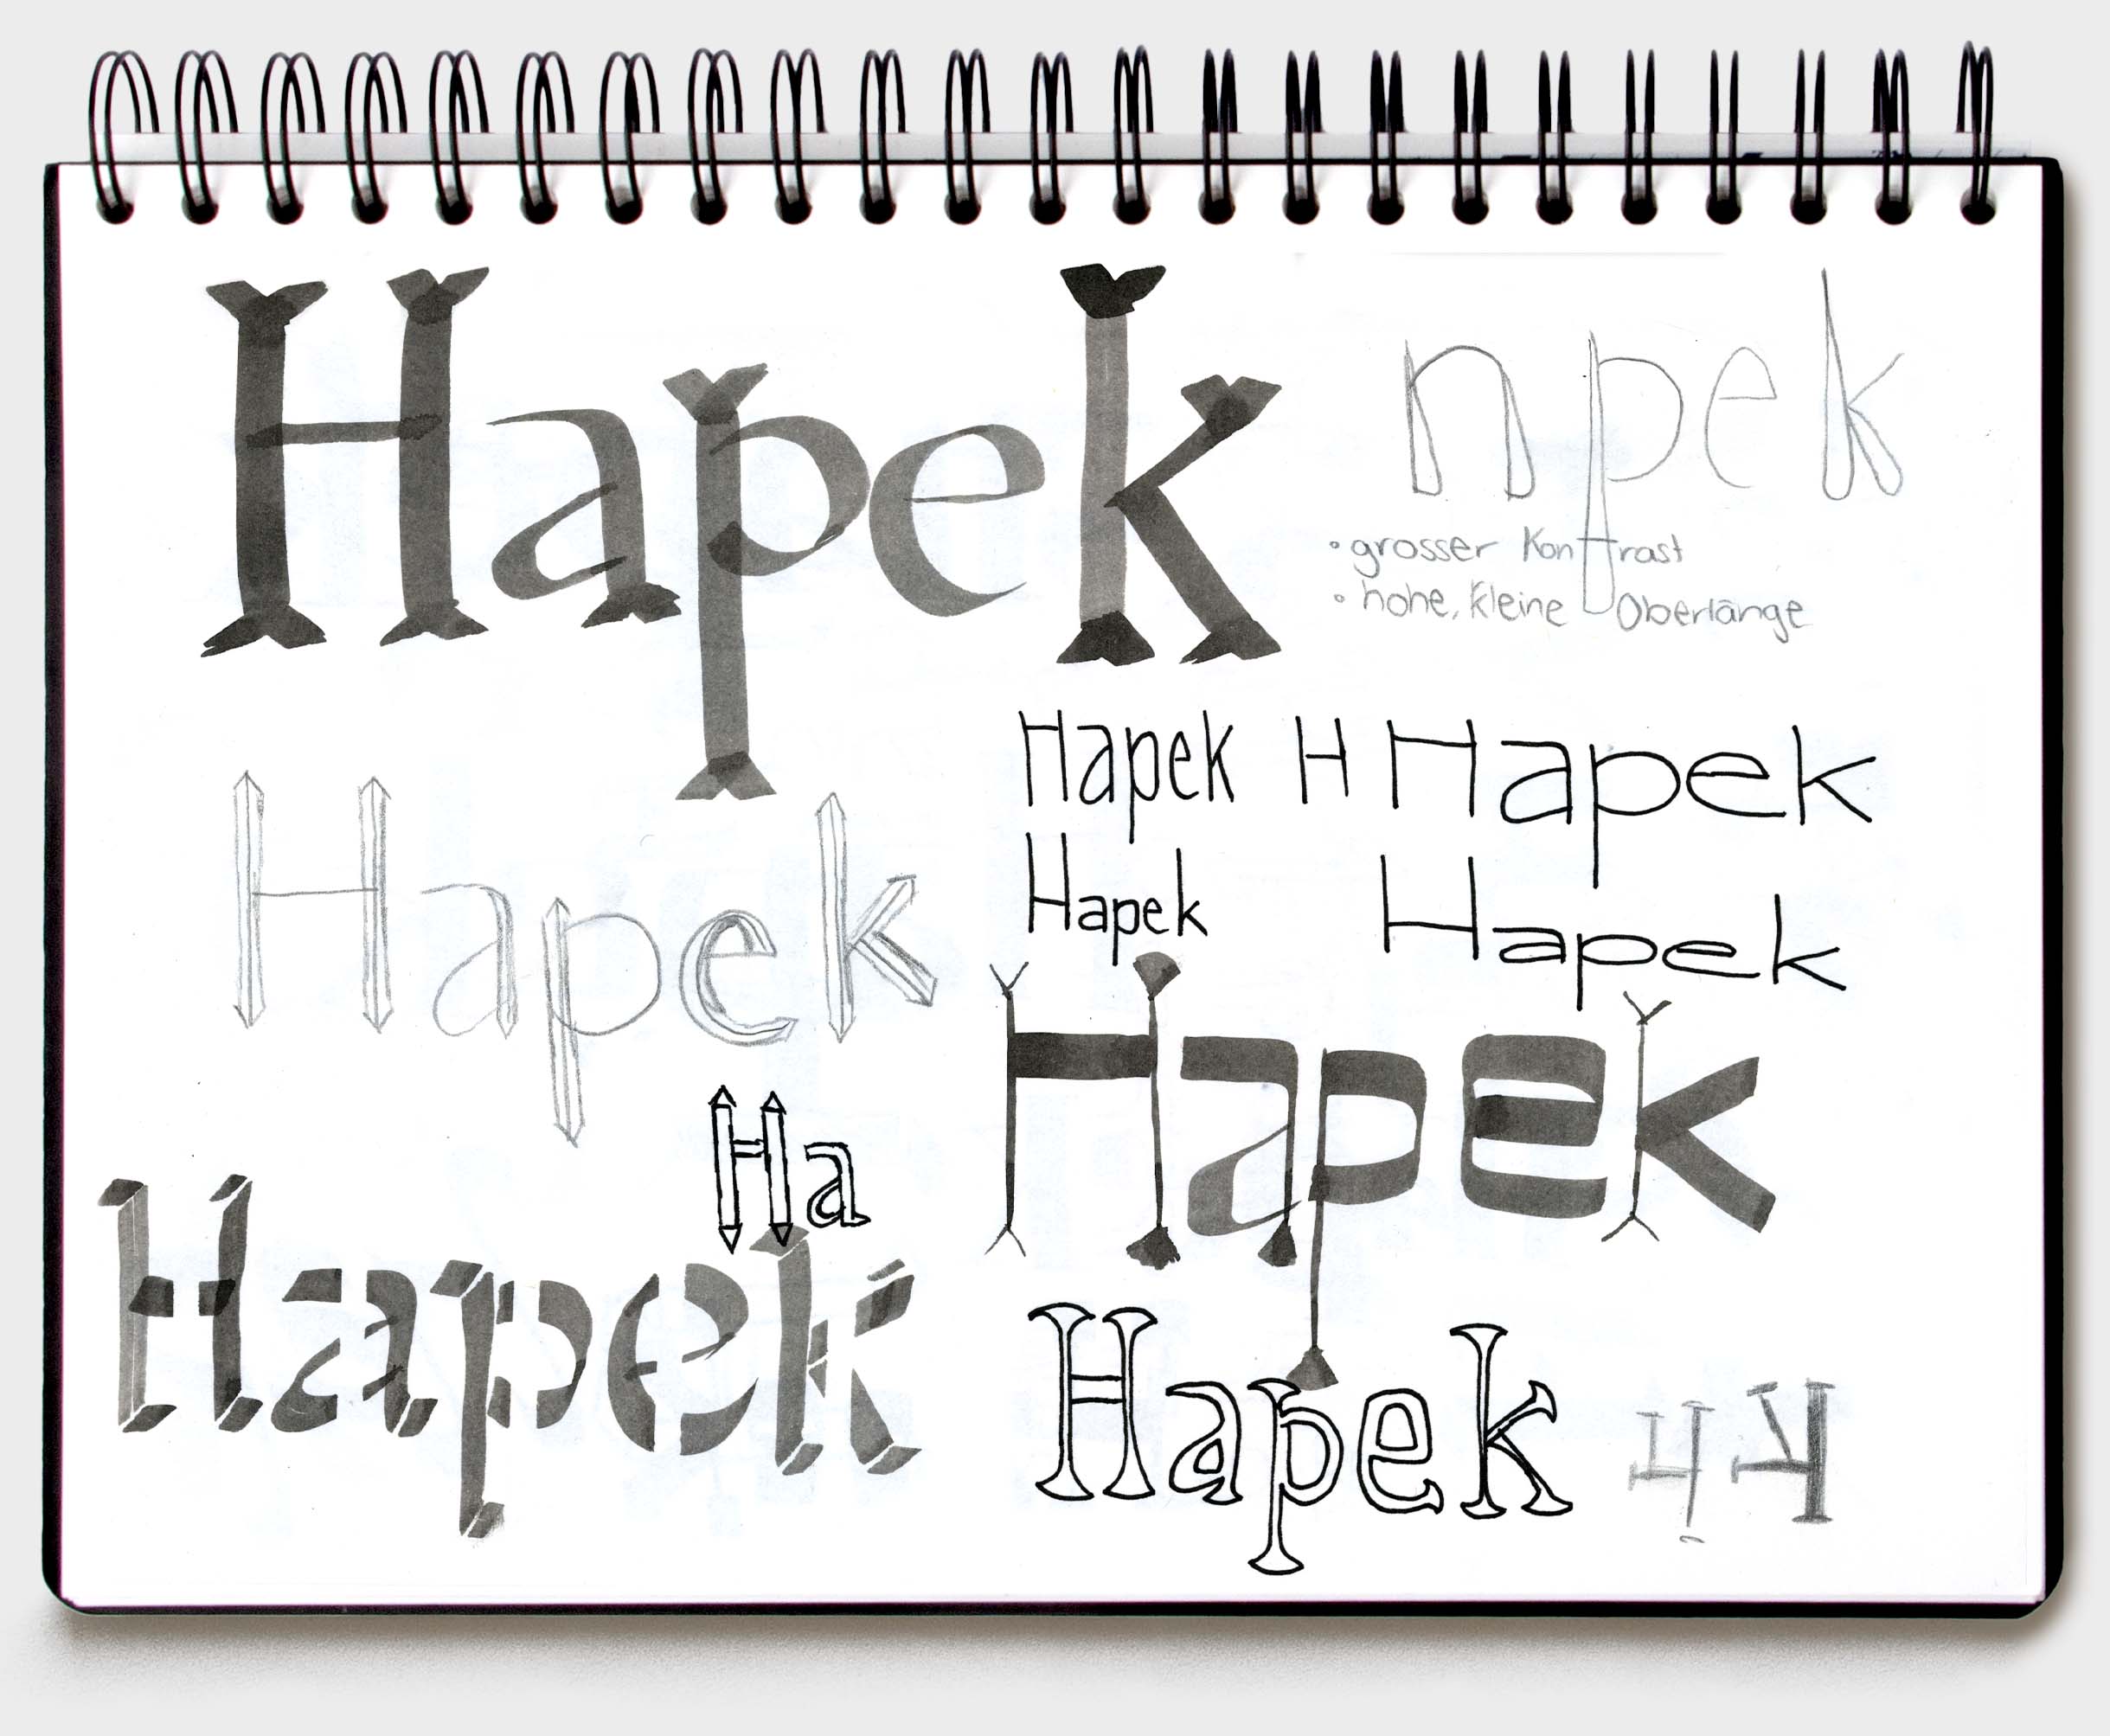 Hapek
npek
• grosser Kontrast
• hohe, kleine Oberlänge
Hapek H Hapek
Hapek Hapek
Hapek
Hapek
Ha
Hapek
Hapek